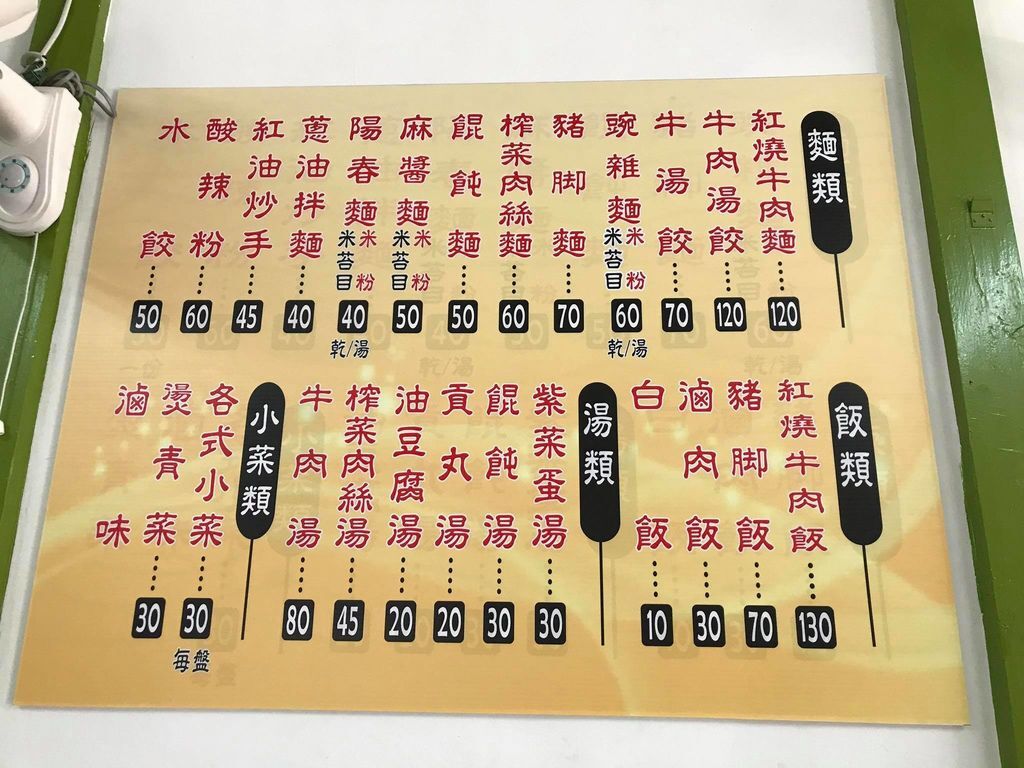 麵類
紅燒牛肉麵 120
牛肉湯餃 120
牛湯餃 70
豌雜麵 米粉 米苔目 60 乾/湯
豬脚麵 70
榨菜肉絲麵 60
餛飩麵 50
麻醬麵 米粉 米苔目 50
陽春麵 米粉 米苔目 40 乾/湯
蔥油拌麵 40
紅油炒手 45
酸辣粉 60
水餃 50
飯類
紅燒牛肉飯 130
豬脚飯 70
滷肉飯 30
白飯 10
湯類
紫菜蛋湯 30
餛飩湯 30
貢丸湯 20
油豆腐湯 20
榨菜肉絲湯 45
牛肉湯 80
小菜類
各式小菜 30 每盤
燙青菜 30
滷味